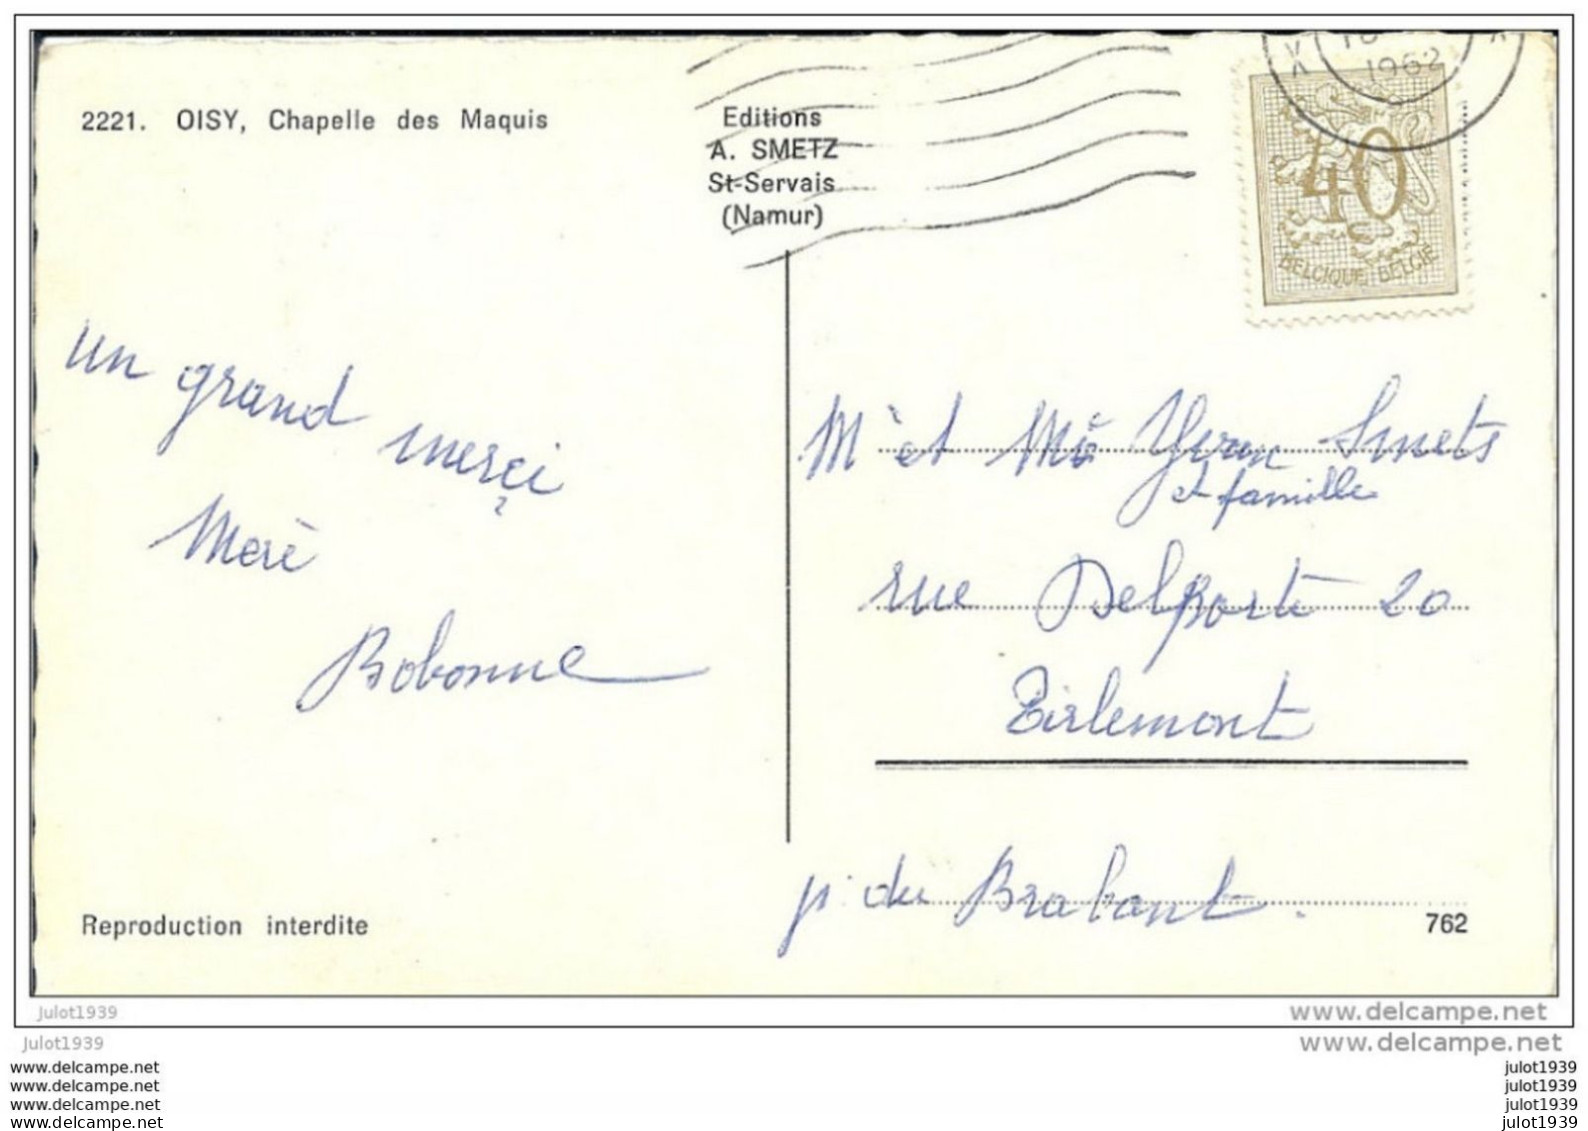 2221. OISY, Chapelle des Maquis
Editions
A. SMETZ
St-Servais
(Namur)
1962
40
BELGIQUE BELGIË
un grand merçi
Merè
Bobonne
Mr et Me Yvon Smets
et famille
rue Delporte 20
Tirlemont
p. du Brabant.
Reproduction interdite
762
julot1939
www.delcampe.net
julot1939
www.delcampe.net
www.delcampe.net
julot1939
www.delcampe.net
julot1939
www.delcampe.net
julot1939
www.delcampe.net
julot1939